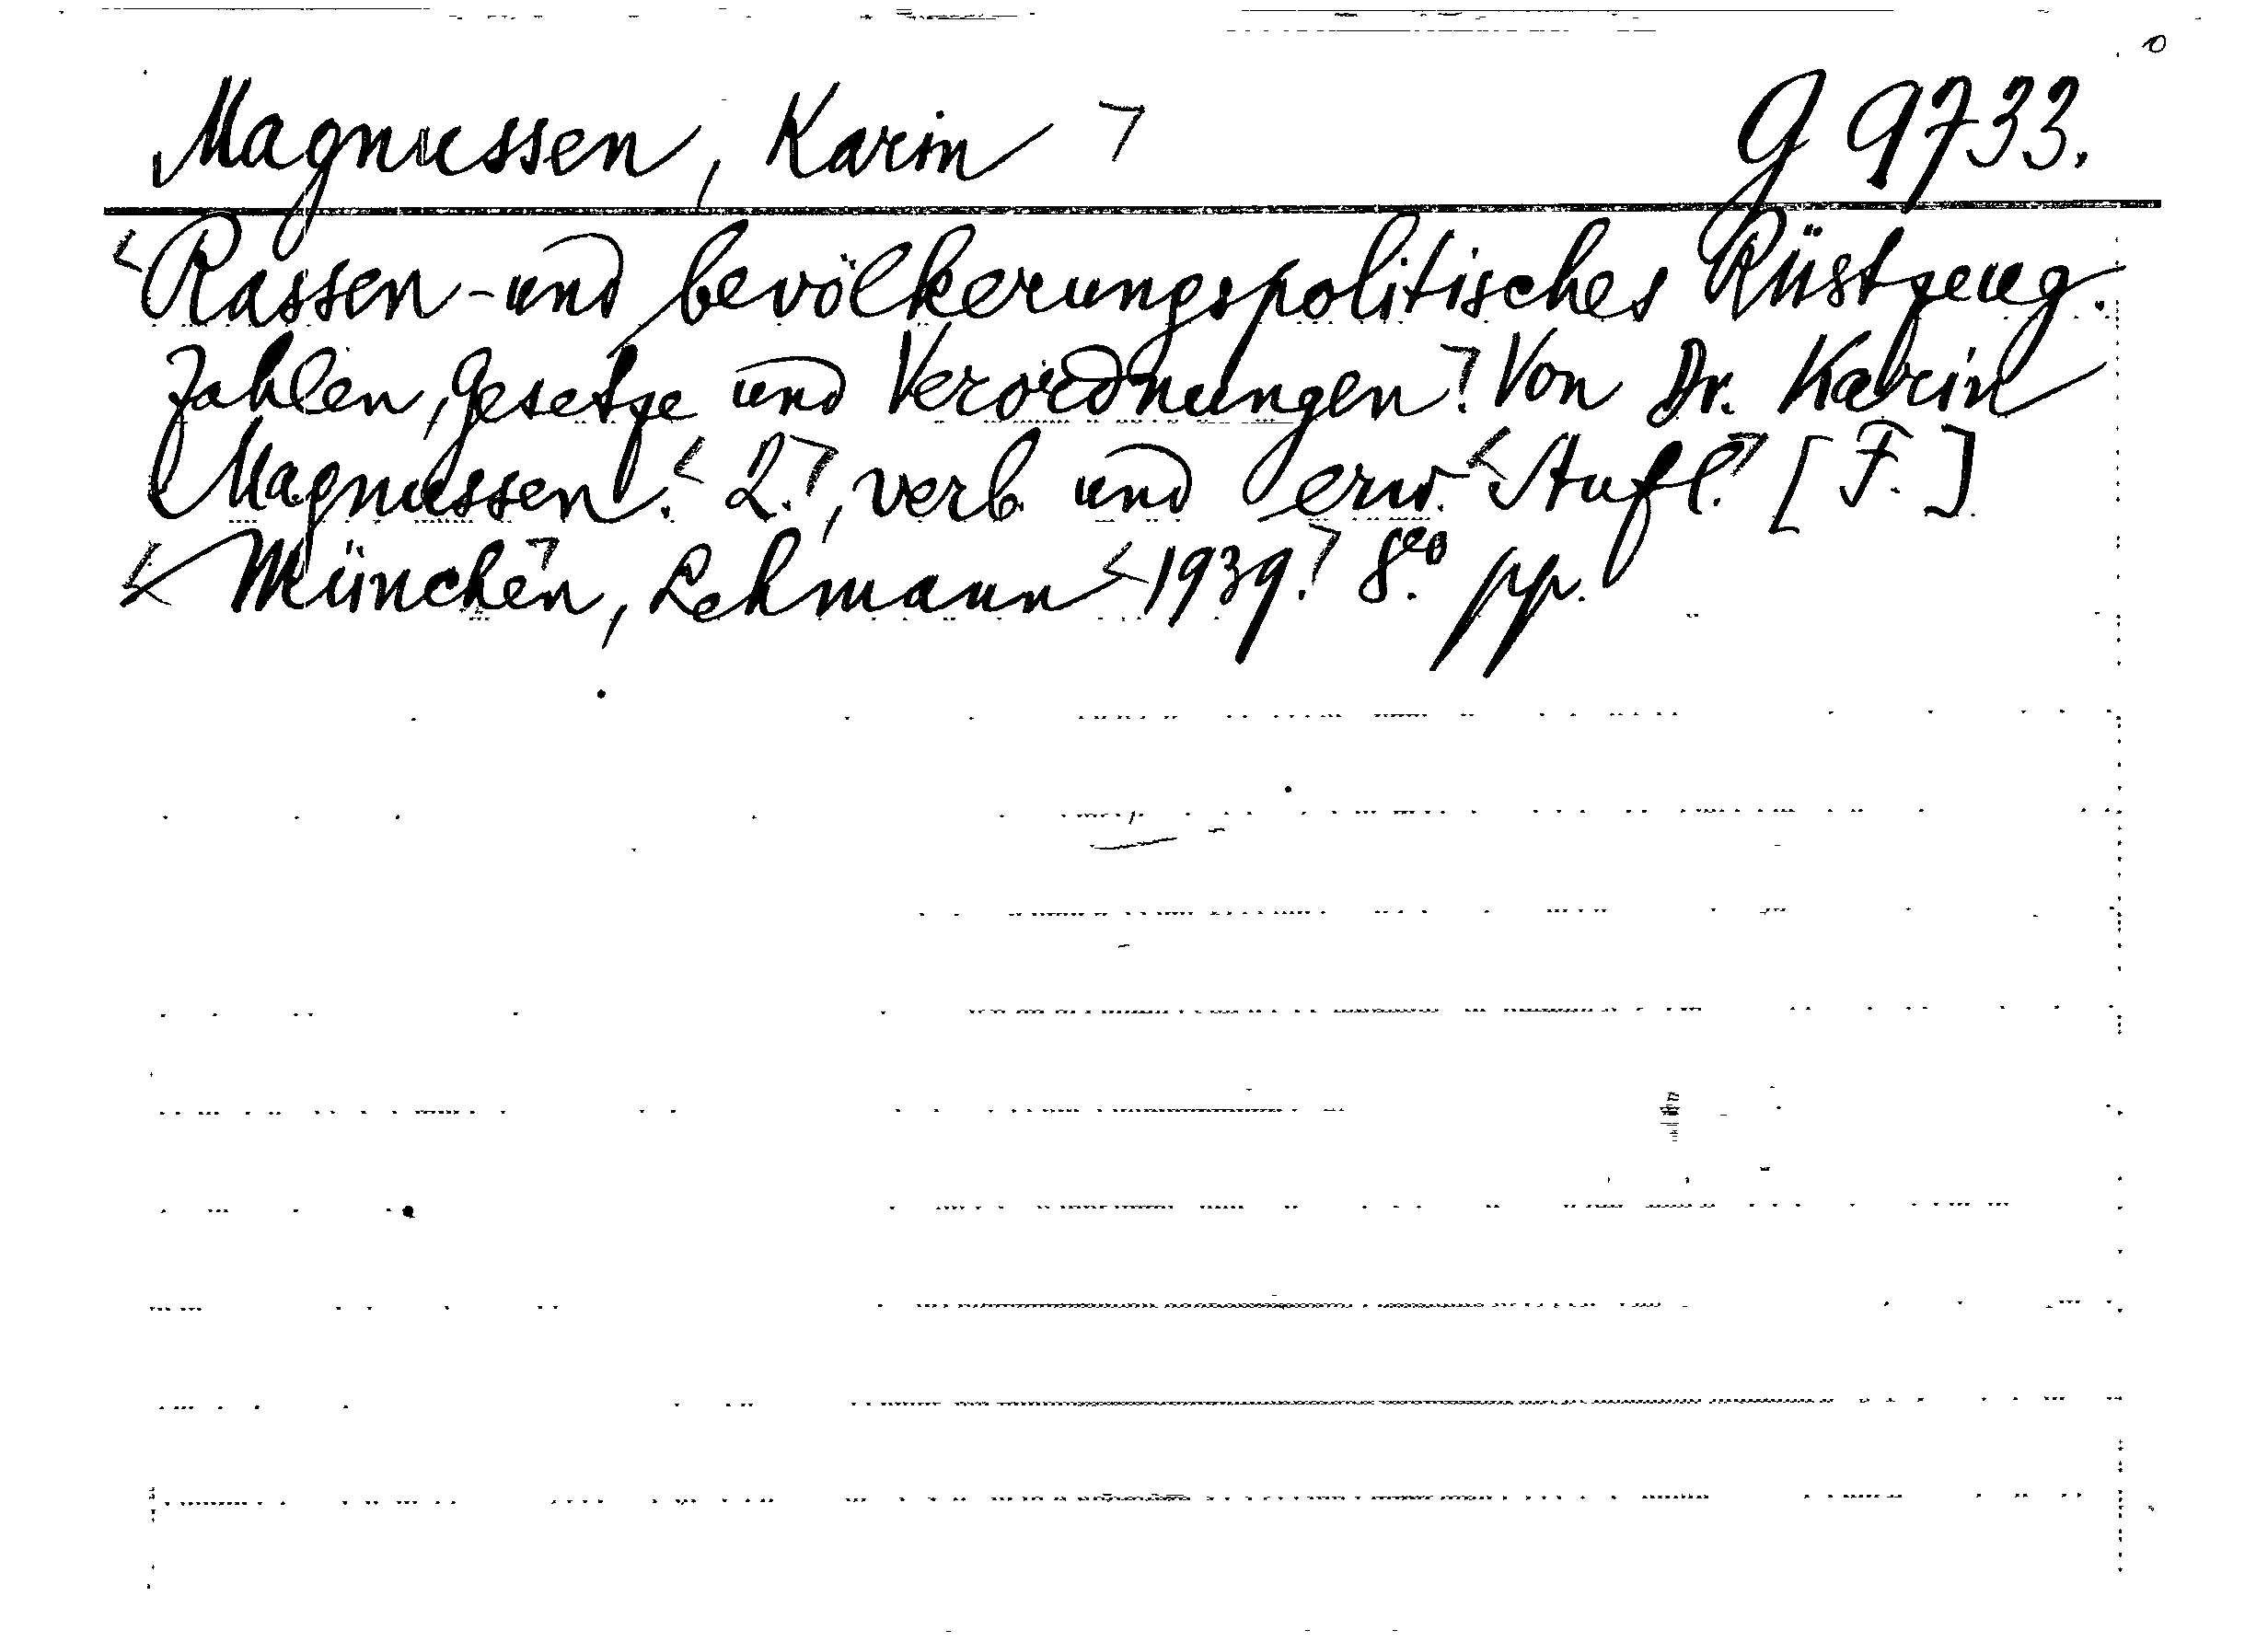 Magnussen, Karin ㄱ G 9733.
<Rassen- und bevölkerungspolitisches Rüstzeug.
Zahlen, Gesetze und Verordnungen.ㄱ Von Dr. Karin
Magnussen. <2.ㄱ, verb. und erw. <Aufl.ㄱ [F.]
<München,ㄱ Lehmann <1939.ㄱ 8.º pp.